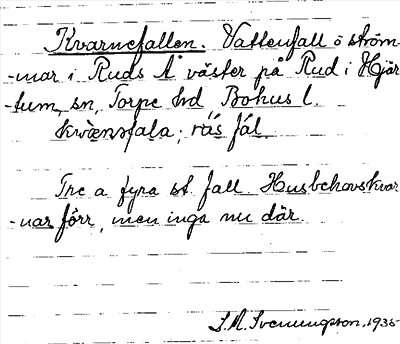 Kvarnefallen. Vattenfall o ström
-mar i Ruds Å väster på Rud i Hjär
-tum sn, Torpe hd Bohus l.
kwàenfala; rås fál.
Tre a fyra st fall. Husbehovskvar
-nar förr, men inga nu där.
S.M. Svenungsson, 1935